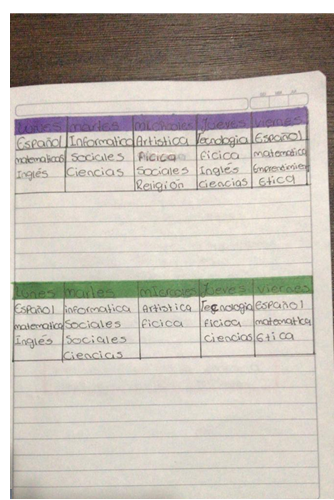 Lunes martes miercoles Jueves viernes
Español Informatica Artistica Tecnologia Español
matematicas Sociales Ficica ficica matematica
Inglés Ciencias Sociales Inglés Emprendimien
Religión ciencias Etica
Lunes martes miercoles Jueves viernes
Español informatica Artistica Tecnologia Español
matematica Sociales ficica ficica matematica
Inglés Sociales ciencias Etica
ciencias